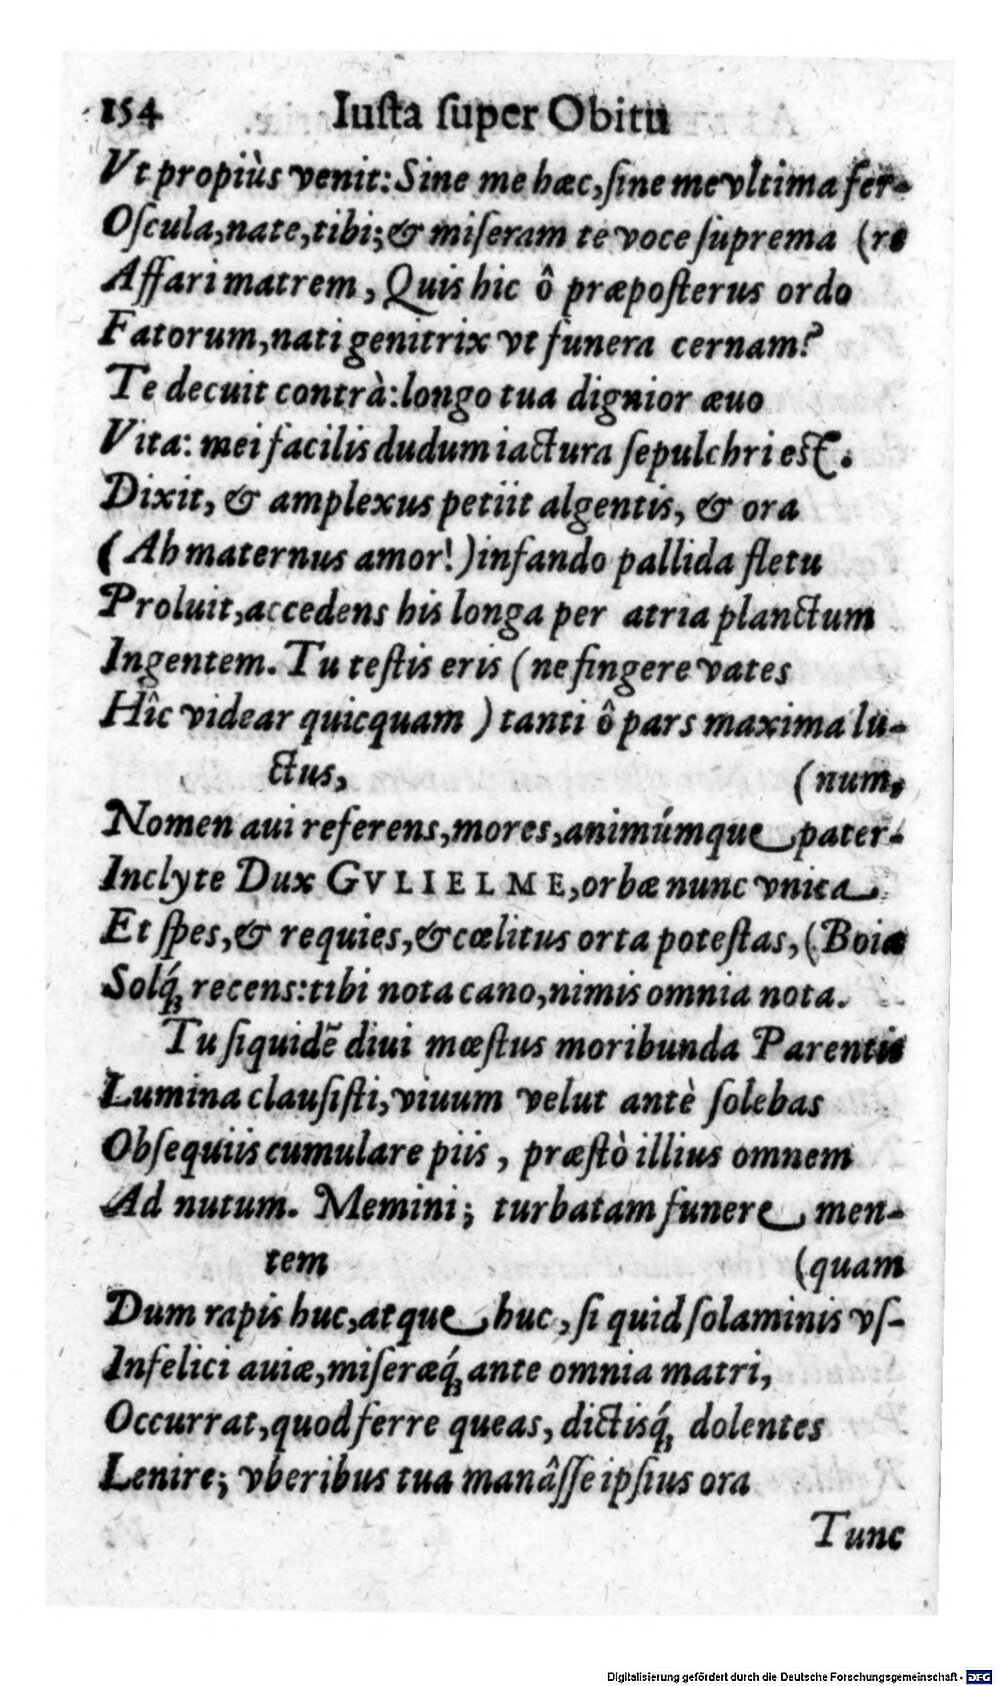 154 Iuſta ſuper Obitu
Vt propiùs venit: Sine me hæc, ſine me vltima fer-
Oſcula, nate, tibi; & miſeram te voce ſuprema (re
Affari matrem, Quis hic ô præpoſterus ordo
Fatorum, nati genitrix vt funera cernam?
Te decuit contrà: longo tua dignior æuo
Vita: mei facilis dudum iactura ſepulchri eſt.
Dixit, & amplexus petiit algentis, & ora
(Ah maternus amor!) infando pallida fletu
Proluit, accedens his longa per atria planctum
Ingentem. Tu teſtis eris (ne fingere vates
Hîc videar quicquam) tanti ô pars maxima lu-
ctus, (num,
Nomen aui referens, mores, animúmque pater-
Inclyte Dux GVLIELME, orbæ nunc vnica
Et ſpes, & requies, & cœlitus orta poteſtas, (Boiæ
Solq́; recens: tibi nota cano, nimis omnia nota.
Tu ſiquidē diui mœſtus moribunda Parentis
Lumina clauſiſti, viuum velut antè ſolebas
Obſequiis cumulare piis, præſtò illius omnem
Ad nutum. Memini; turbatam funere men-
tem (quam
Dum rapis huc, atque huc, ſi quid ſolaminis vſ-
Infelici auiæ, miſeræq́; ante omnia matri,
Occurrat, quod ferre queas, dictisq́; dolentes
Lenire; vberibus tua manâſſe ipſius ora
Tunc
Digitalisierung gefördert durch die Deutsche Forschungsgemeinschaft - DFG